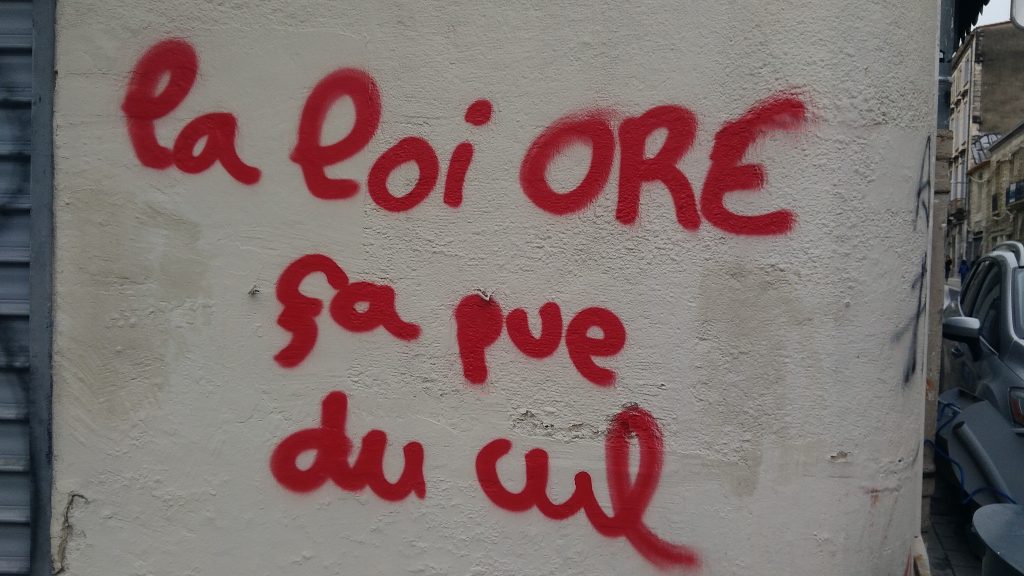 la loi ORE
ça pue
du cul